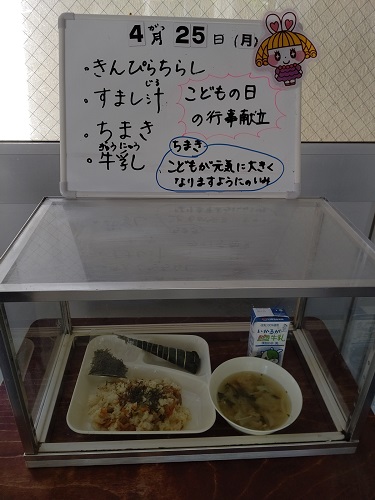 4月 25日(月)
がつ
・きんぴらちらし
・すまし汁
じる
・ちまき
・牛乳
ぎゅうにゅう
こどもの日
の行事献立
ちまき
こどもが元気に大きく
なりますようにのいみ
牛乳